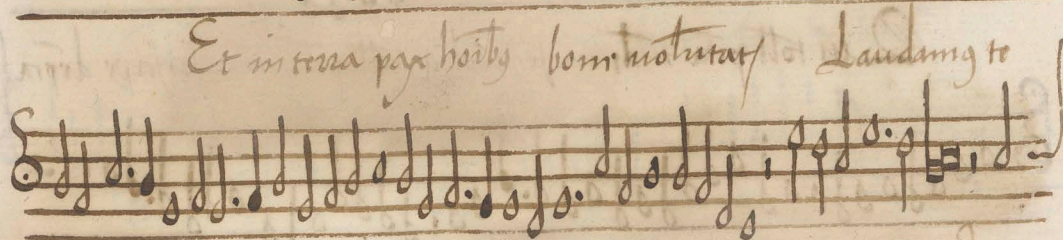 Et in terra pax hoib9 bone uolutat Laudam9 te